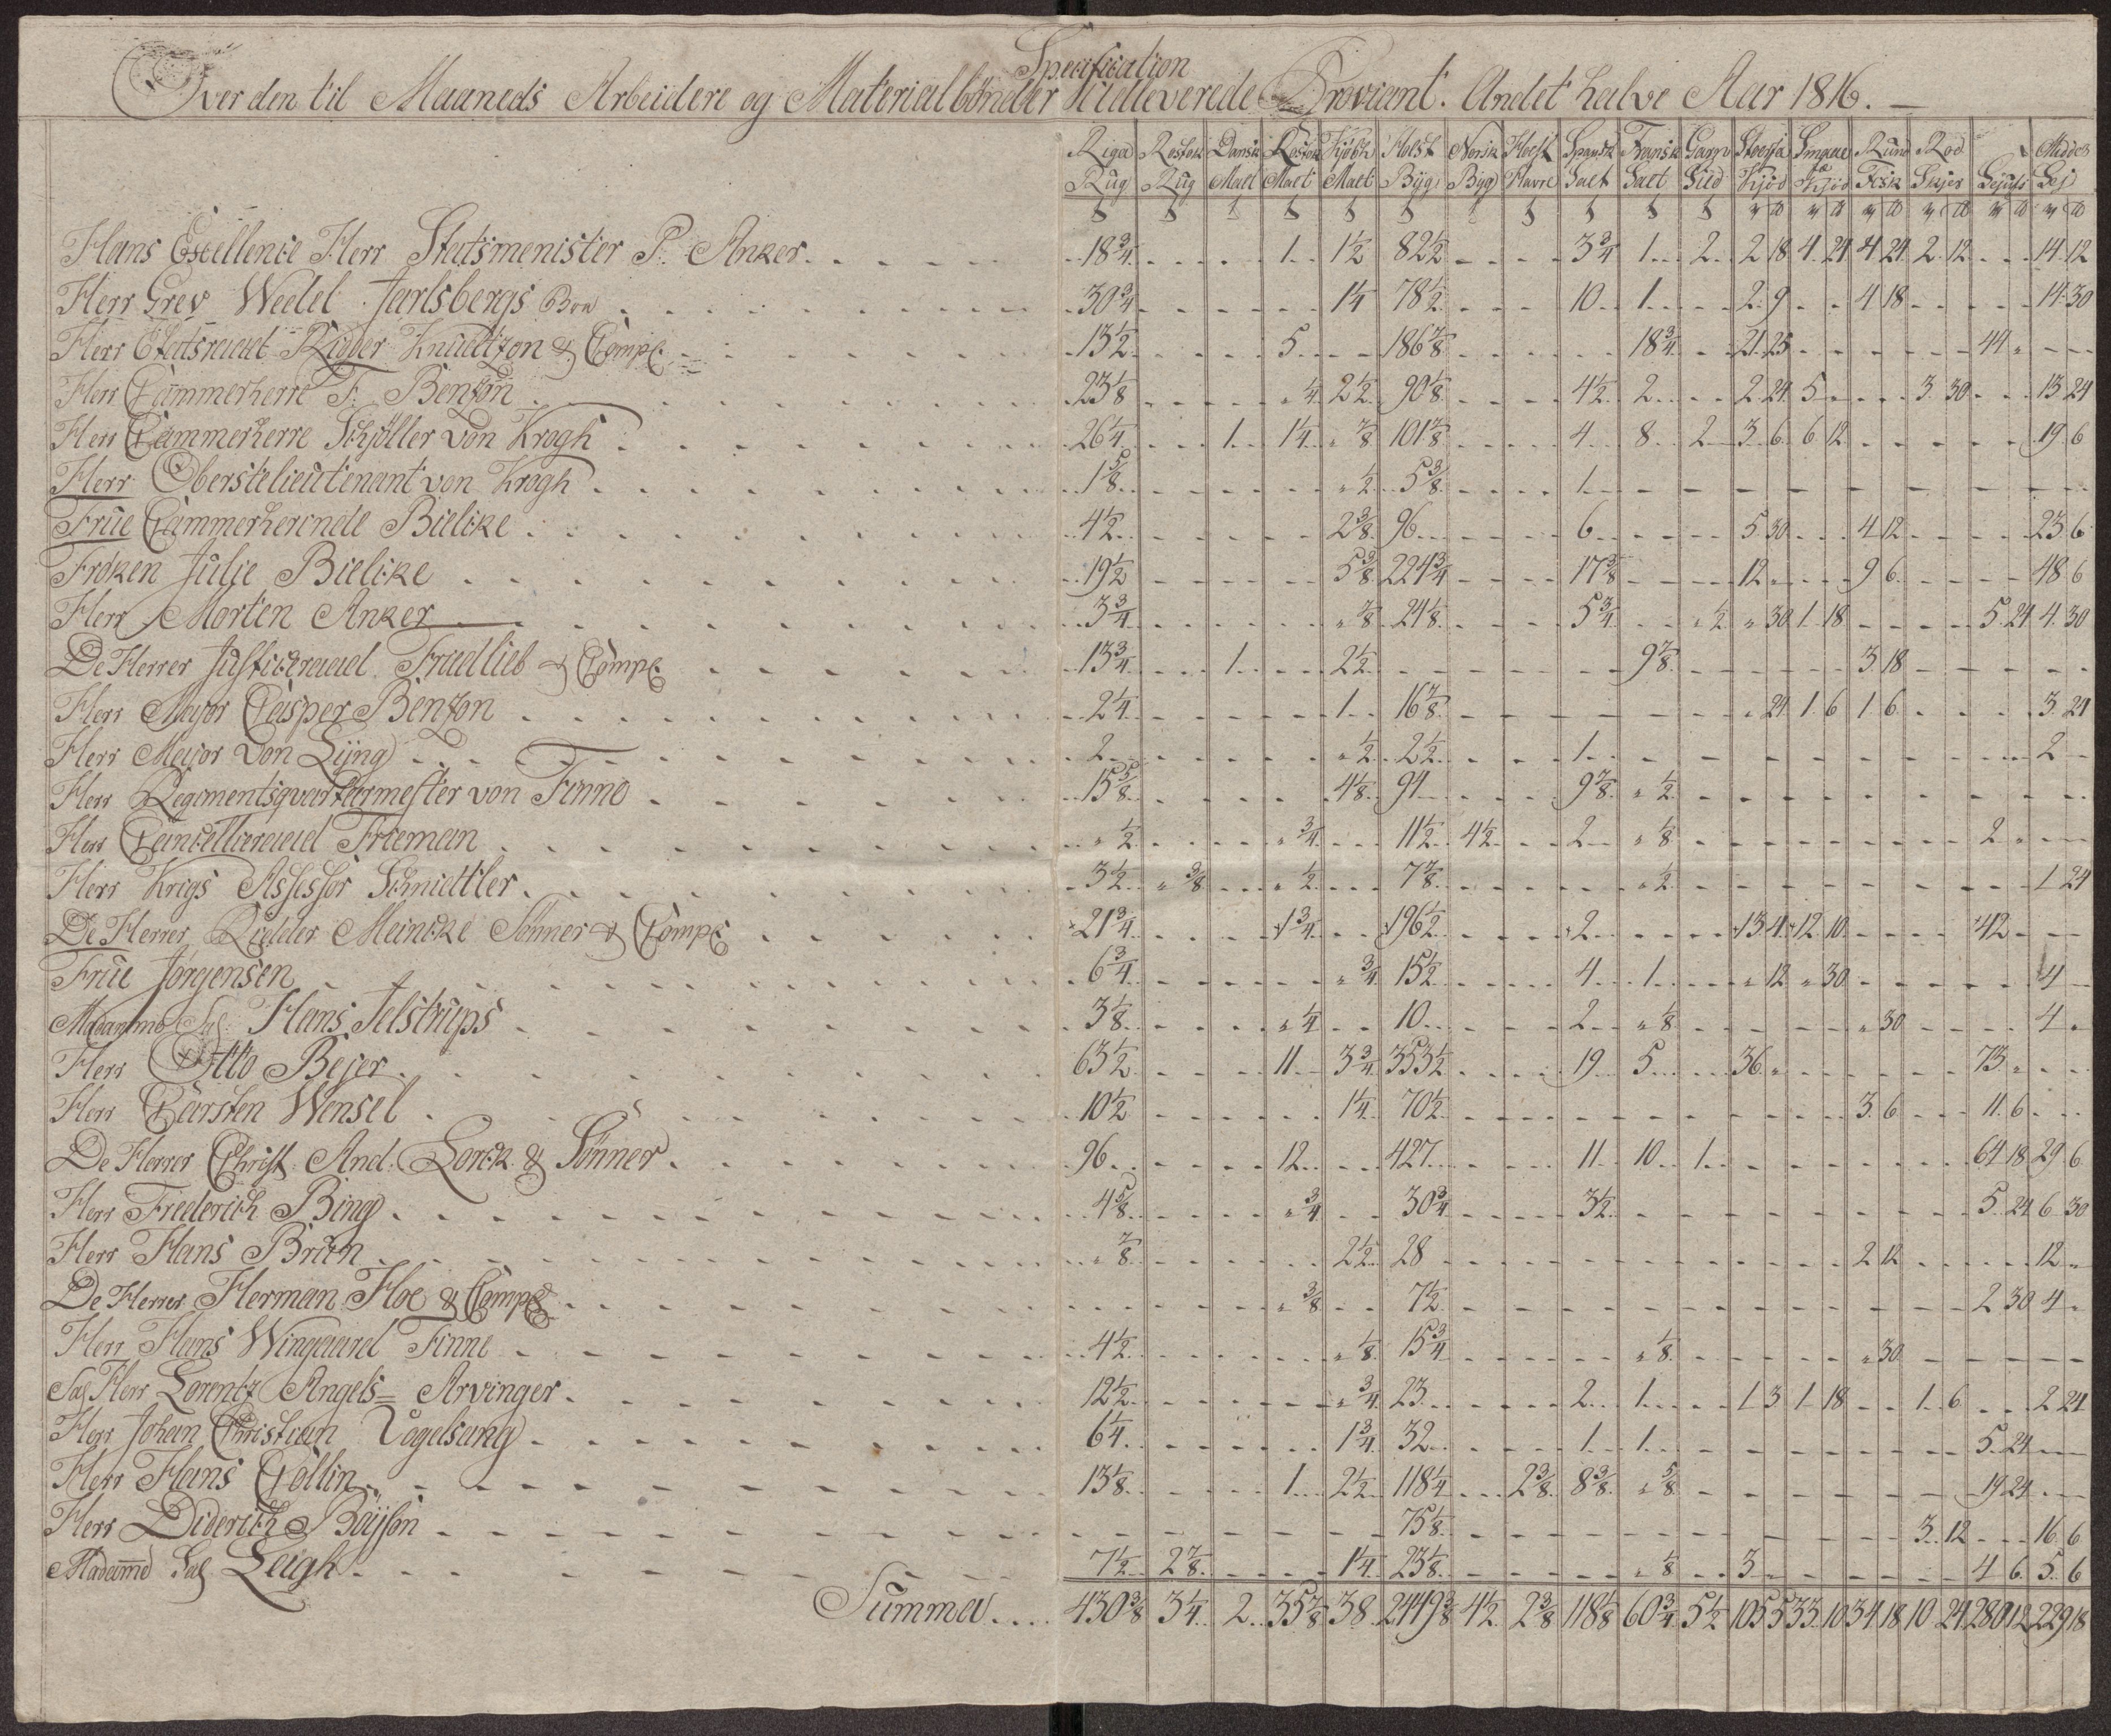 Specification
Over den til Maaneds Arbeidere og Materialbønder Udleverede Proviant. Andet halve Aar 1816. —
Riga Rostok Dansk Rostok Kjøbh Holst Norsk Holst Spansk Fransk Garp Stoer Smaae Rund Rod Middel
Rug Rug Malt Malt Malt Byg Byg Havre Salt Salt Sild Kjød Kjød Fisk Skjer Sej
Hans Excellence Herr Statsmenister P. Anker 18 3/4 1 1 1/2 82 1/2 3 3/4 1 2 2 18 4 24 4 24 2 12 14 12
Herr Grev Wedel Jarlsbergs 30 3/4 1 1/4 78 1/2 10 1 2 9 4 18 14 30
Herr Etatsraad Ridder Knudtzon & Compe 13 1/2 5 186 7/8 18 3/4 21 25 44 "
Herr Cammerherre F. Benzon 23 1/8 " 1/4 2 1/2 90 1/8 4 1/2 2 2 24 5 3 30 13 24
Herr Cammerherre Schøller von Krogh 26 1/4 1 1 1/4 " 7/8 101 7/8 4 8 2 3 6 6 12 19 6
Herr Oberstelieutenant von Krogh 1 5/8 " 1/2 5 3/8 1
Frue Cammerherinde Bielcke 4 1/2 2 3/8 96 6 5 30 4 12 23 6
Frøken Julie Bielcke 19 1/2 5 3/8 224 3/4 17 3/8 12 9 6 48 6
Herr Morten Anker 3 3/4 " 7/8 24 1/8 5 3/4 " 1/2 " 30 1 18 5 24 4 30
De Herrer Justiceraad Friedlieb & Compe 13 3/4 1 2 1/2 9 7/8 3 18
Herr Major Casper Benzon 2 1/4 1 16 7/8 " 24 1 6 1 6 3 24
Herr Major von Lÿng 2 " 1/2 2 1/2 1 2
Herr Regimentsqvarteermester von Finne 15 5/8 4 1/8 94 9 7/8 " 1/2
Herr Cancellieraad Frieman " 1/2 " 3/4 11 1/2 4 1/2 2 " 1/8 2 "
Herr Krigs Assessor Schmettler 3 1/2 " 3/8 " 1/2 7 7/8 " 1/2 1 24
De Herrer Ridder Meincke Sønner & Compe 21 3/4 1 3/4 196 1/2 2 13 4 12 10 42
Frue Jørgensen 6 3/4 " 3/4 15 1/2 4 1 " 12 " 30 4
Madamme Sal: Hans Jelstrups 3 1/8 " 1/4 10 2 " 1/8 " 30 4 "
Herr Otto Bejer 63 1/2 11 3 3/4 353 1/2 19 5 36 " 73 "
Herr Carsten Wensel 10 1/2 1 1/4 70 1/2 3 6 11 6
De Herrer Christ. And. Lorck & Sønner 96 12 427 11 10 1 64 18 29 6
Herr Friederich Bing 4 5/8 " 3/4 30 3/4 3 1/2 5 24 6 30
Herr Hans Bruun " 7/8 2 1/2 28 2 12 12 "
De Herrer Herman Hoe & Compe " 3/8 7 1/2 2 30 4 "
Herr Hans Wingaard Finne 4 1/2 " 1/8 15 3/4 " 1/8 " 30
Sal Herr Lorentz Angels= Arvinger 12 1/2 " 3/4 23 2 1 1 3 1 18 1 6 2 24
Herr Johan Christian Vogelsang 6 1/4 1 3/4 32 1 1 5 24
Herr Hans Collin 13 1/8 1 2 1/2 118 1/4 2 3/8 8 3/8 " 5/8 19 24
Herr Diderich Böÿson 75 1/8 3 12 16 6
Madamme Sal Leigh 7 1/2 2 7/8 1 1/4 23 1/8 " 1/8 3 4 6 5 6
Summa 430 3/8 3 1/4 2 35 7/8 38 2449 3/8 4 1/2 2 3/8 118 1/8 60 3/4 5 1/2 105 5 33 10 34 18 10 24 280 12 229 18